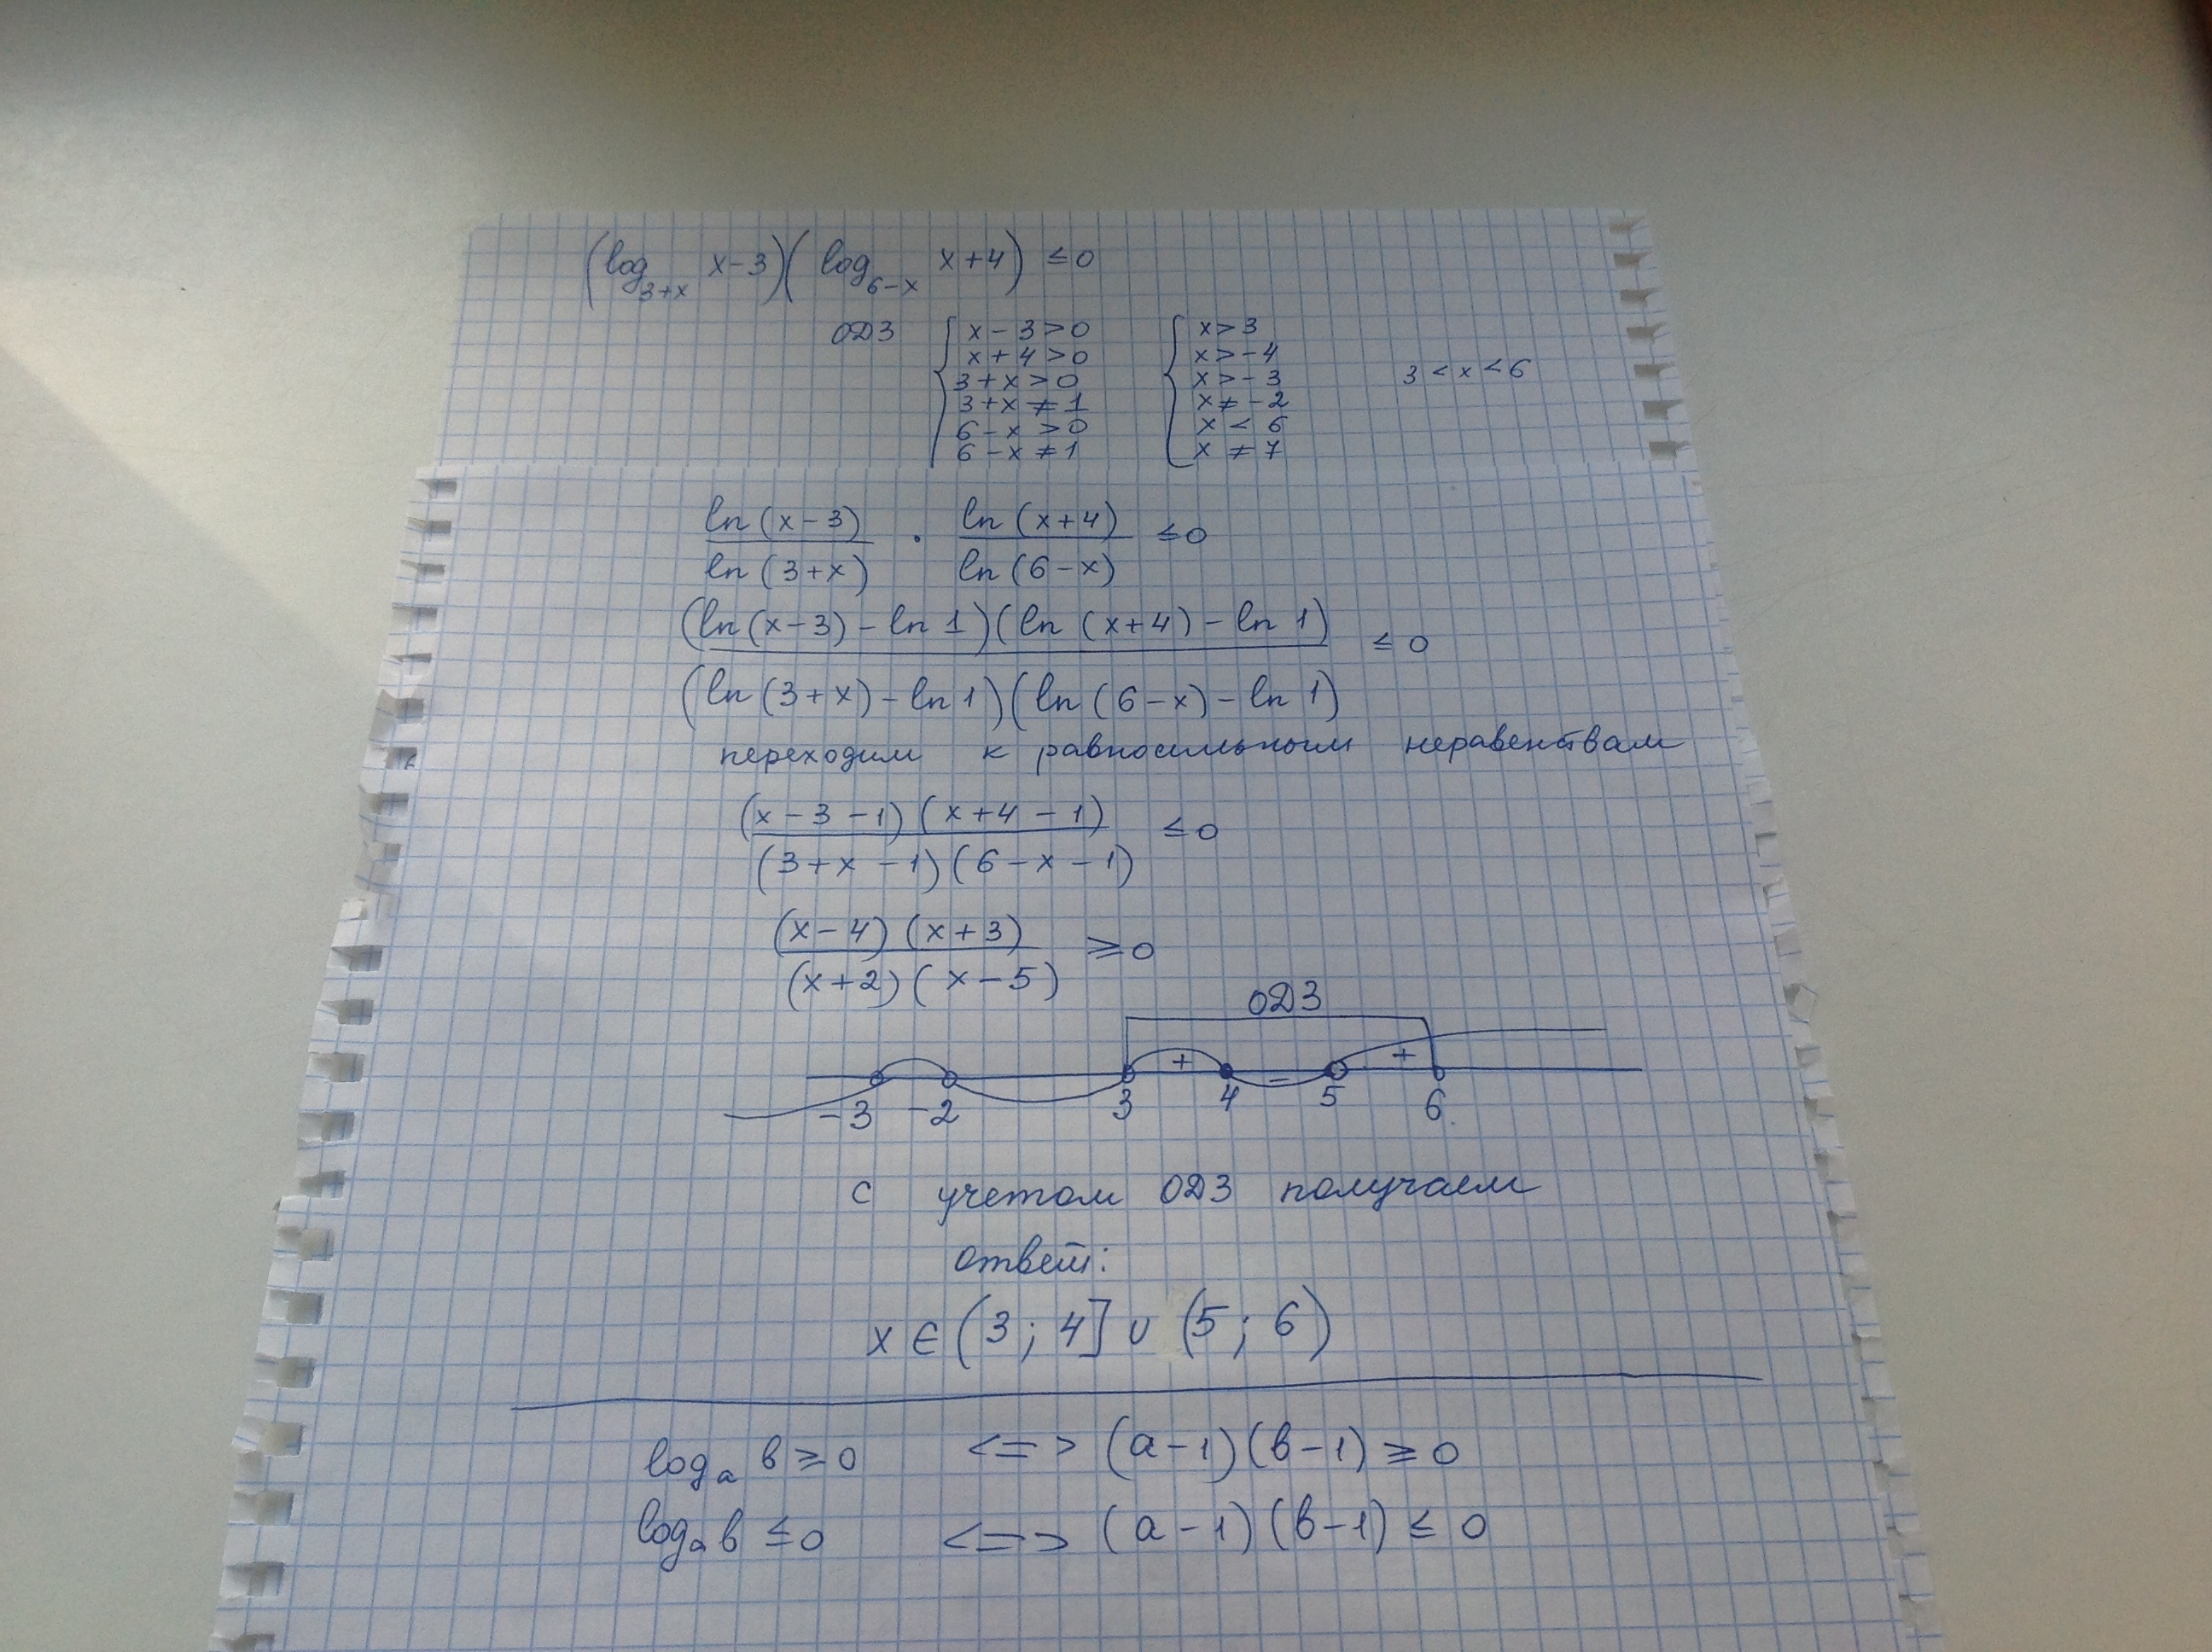 (log₃₊ₓ x-3)(log₆₋ₓ x+4) ≤0
ОДЗ { x-3>0 { x>3
x+4>0 x>-4
3+x>0 x>-3 3<x<6
3+x≠1 x≠-2
6-x>0 x<6
6-x≠1 x≠7
ln(x-3)/ln(3+x) · ln(x+4)/ln(6-x) ≤0
(ln(x-3)-ln 1)(ln(x+4)-ln 1)/(ln(3+x)-ln 1)(ln(6-x)-ln 1) ≤0
переходим к равносильным неравенствам
(x-3-1)(x+4-1)/(3+x-1)(6-x-1) ≤0
(x-4)(x+3)/(x+2)(x-5) ≥0
ОДЗ
+ - +
-3 -2 3 4 5 6
с учетом ОДЗ получаем
ответ:
x∈(3;4]∪(5;6)
logₐ в≥0 <=> (a-1)(в-1)≥0
logₐ в≤0 <=> (a-1)(в-1)≤0